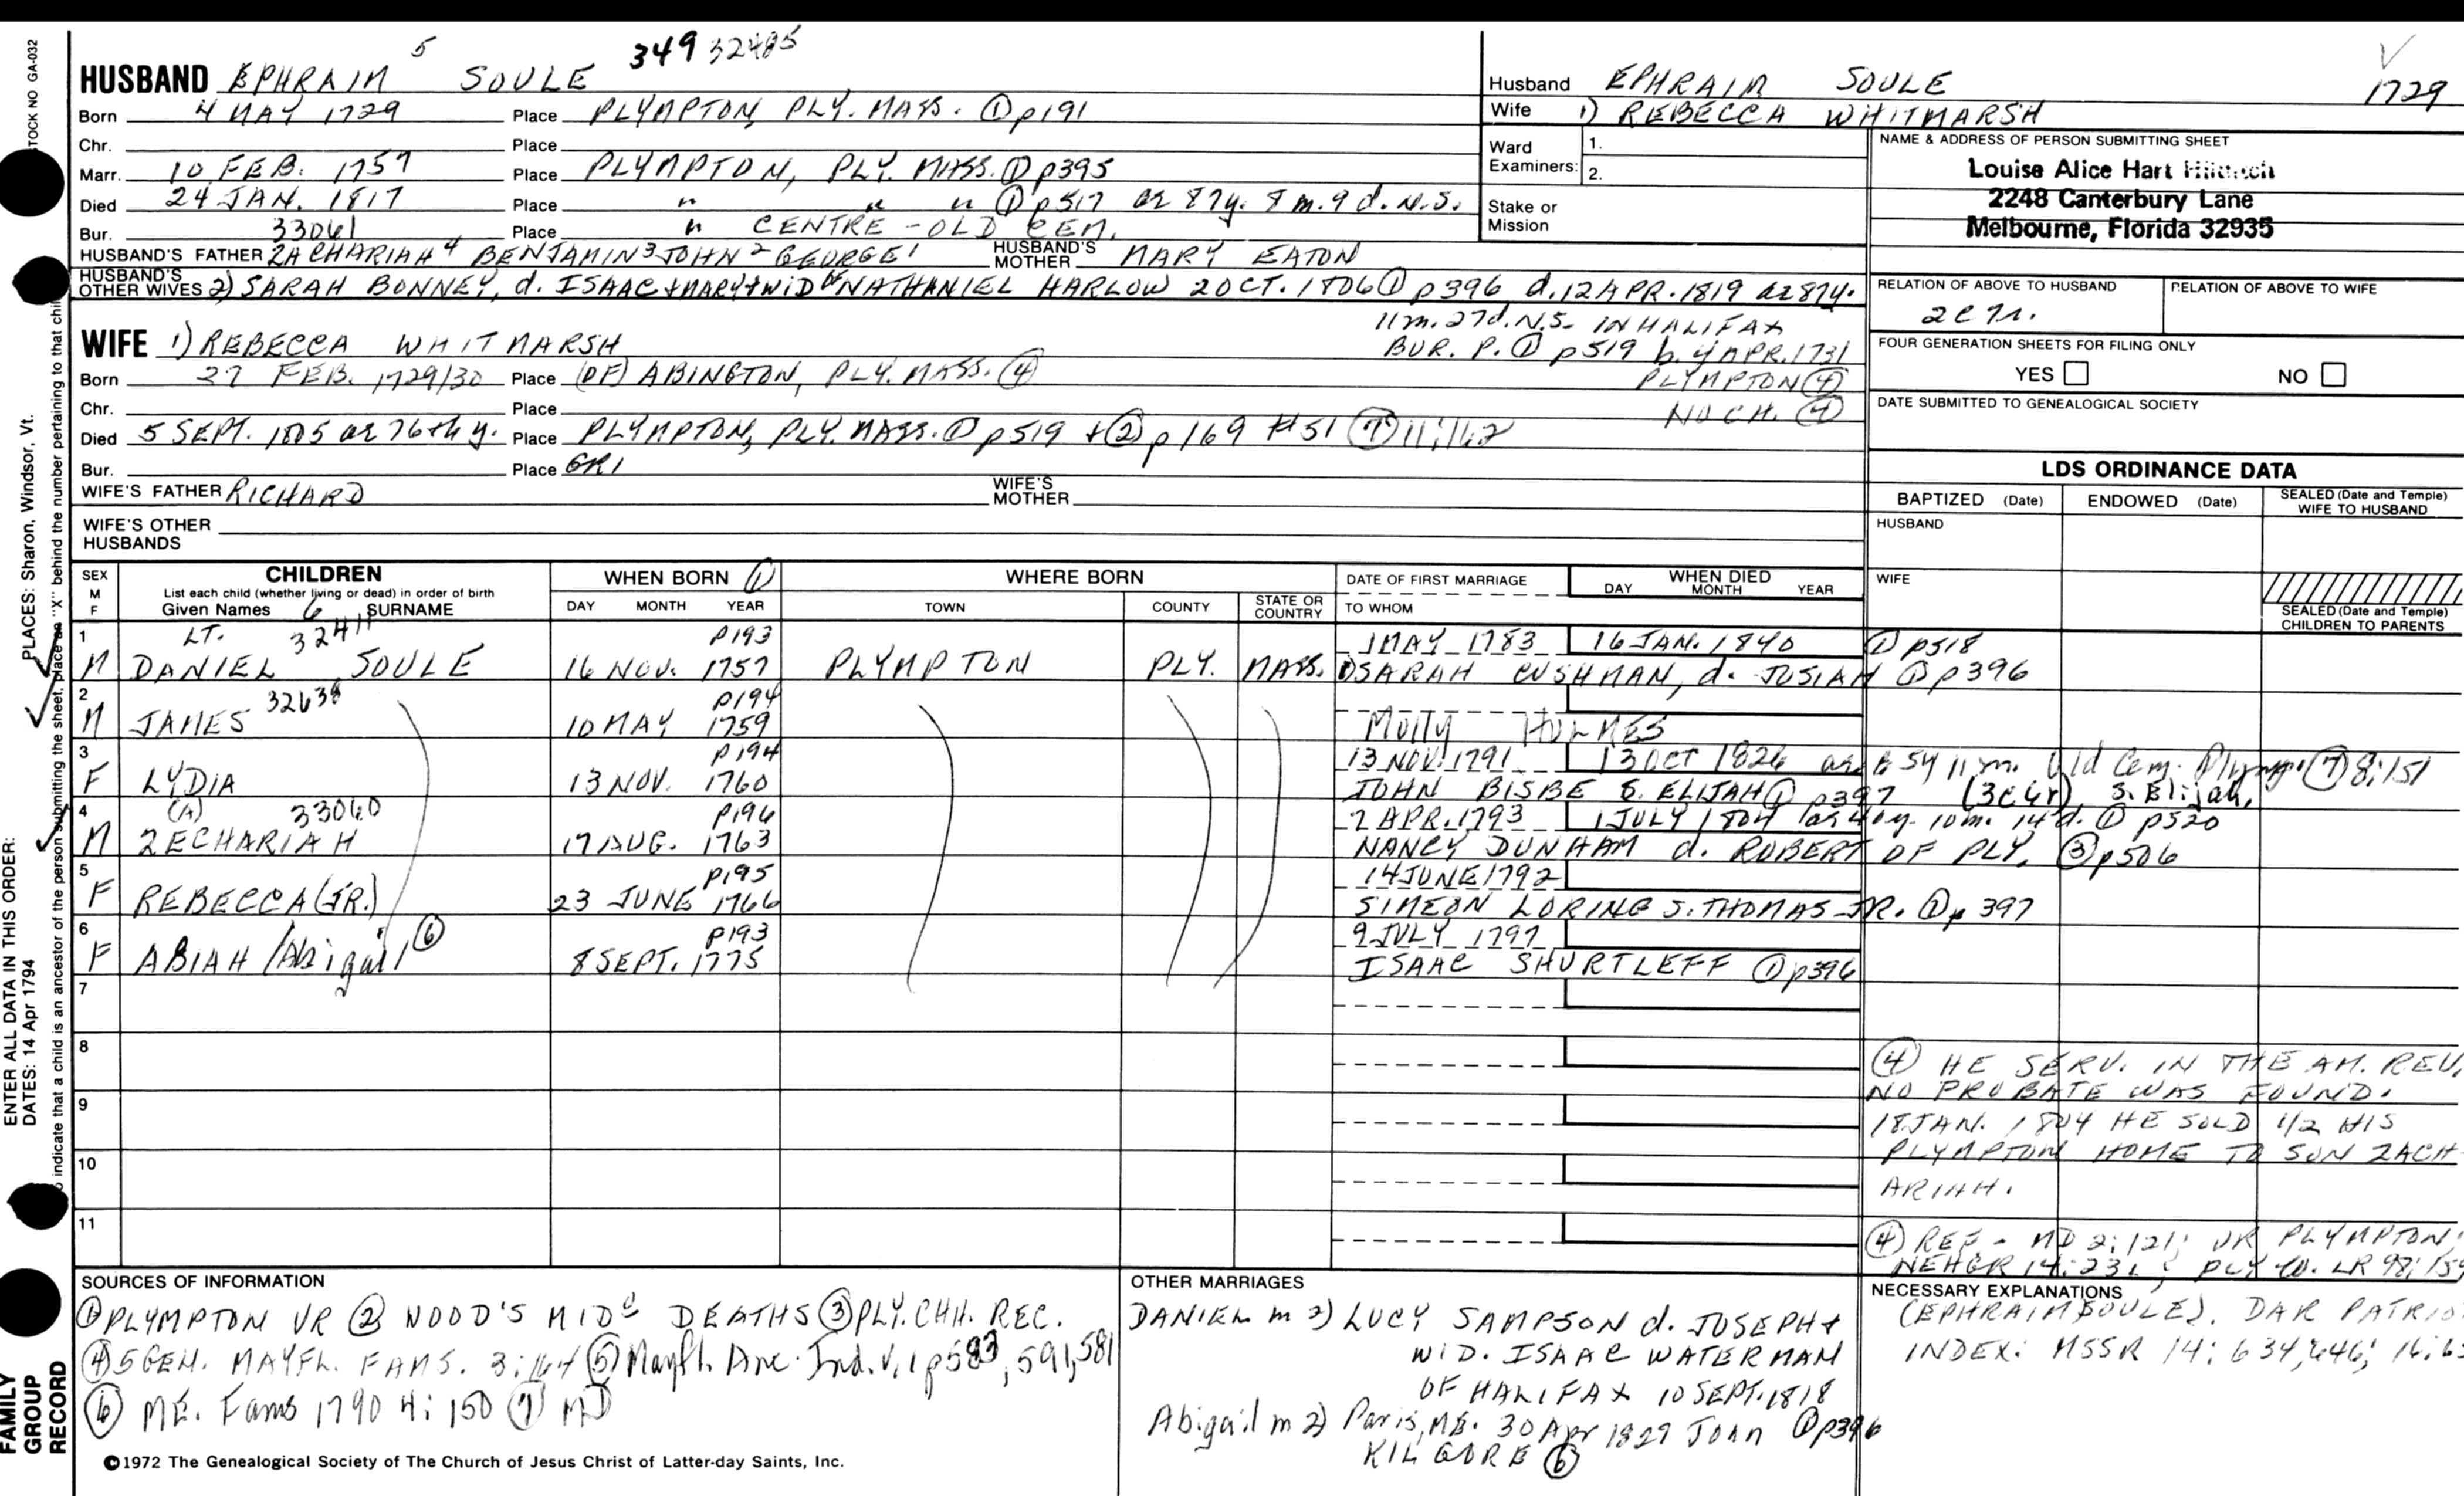 5 349 32485
HUSBAND EPHRAIM SOULE
Born 4 MAY 1729 Place PLYMPTON, PLY. MASS. ① p191
Chr. Place
Marr. 10 FEB. 1757 Place PLYMPTON, PLY. MASS. ① p395
Died 24 JAN. 1817 Place " " " ① p517 ae 87y. 8 m. 9 d. N.S.
Bur. 33061 Place " CENTRE - OLD CEM.
HUSBAND'S FATHER ZACHARIAH 4 BENJAMIN 3 JOHN 2 GEORGE 1 HUSBAND'S MOTHER MARY EATON
HUSBAND'S OTHER WIVES 2) SARAH BONNEY, d. ISAAC + MARY + WID OF NATHANIEL HARLOW 2 OCT. 1806 ① p396 d. 12 APR. 1819 ae 87y.
11 m. 27d. N.S. IN HALIFAX
WIFE 1) REBECCA WHITMARSH BUR. P. ① p519 b. 4 APR. 1731
Born 27 FEB. 1729/30 Place (OF) ABINGTON, PLY. MASS. ④ PLYMPTON ④
Chr. Place NO CH. ④
Died 5 SEPT. 1805 ae 76th y. Place PLYMPTON, PLY. MASS. ① p519 + ② p169 #51 ⑦ 11:162
Bur. Place GR1
WIFE'S FATHER RICHARD WIFE'S MOTHER
WIFE'S OTHER HUSBANDS
Husband EPHRAIM SOULE 1729
Wife 1) REBECCA WHITMARSH
Ward Examiners: 1.
2.
Stake or Mission
NAME & ADDRESS OF PERSON SUBMITTING SHEET
Louise Alice Hart
2248 Canterbury Lane
Melbourne, Florida 32935
RELATION OF ABOVE TO HUSBAND RELATION OF ABOVE TO WIFE
FOUR GENERATION SHEETS FOR FILING ONLY
YES NO
DATE SUBMITTED TO GENEALOGICAL SOCIETY
LDS ORDINANCE DATA
BAPTIZED (Date) ENDOWED (Date) SEALED (Date and Temple) WIFE TO HUSBAND
HUSBAND
WIFE
SEALED (Date and Temple) CHILDREN TO PARENTS
SEX M F CHILDREN WHEN BORN ① WHERE BORN DATE OF FIRST MARRIAGE WHEN DIED
List each child (whether living or dead) in order of birth
Given Names 6 SURNAME DAY MONTH YEAR TOWN COUNTY STATE OR COUNTRY TO WHOM DAY MONTH YEAR
1 LT. 32411 p193 1 MAY 1783 16 JAN. 1840 ① p518
M DANIEL SOULE 16 NOV. 1757 PLYMPTON PLY. MASS. 1) SARAH CUSHMAN, d. JOSIAH ① p396
2 32638 p194
M JAMES 10 MAY 1759 Molly HOLMES
3 p194 13 NOV. 1791 13 OCT 1826 54 11 m. Old Cem. Plymp. ⑦ 8:151
F LYDIA 13 NOV. 1760 JOHN BISBE S. ELIJAH ① p397 S. Elijah,
4 (A) 33060 p196 7 APR. 1793 1 JULY 1804 (ae 40y. 10m. 14 d. ① p520
M ZECHARIAH 17 AUG. 1763 NANCY DUNHAM d. ROBERT OF PLY. ③ p506
5 p195 14 JUNE 1792
F REBECCA (JR.) 23 JUNE 1766 SIMEON LORING S. THOMAS JR. ① p 397
6 p193 9 JULY 1797
F ABIAH /Abigail ⑥ 8 SEPT. 1775 ISAAC SHURTLEFF ① p396
7
8
9
10
11
④ HE SERV. IN THE AM. REV.
NO PROBATE WAS FOUND.
18 JAN. 1804 HE SOLD 1/2 HIS
PLYMPTON HOME TO SON ZACH
ARIAH.
④ REF - MD 2:121; VR PLYMPTON;
NEHGR 14:231; PLY CO. LR 98:159
NECESSARY EXPLANATIONS
(EPHRAIM SOULE). DAR PATRIO
INDEX: MSSR 14: 634, 646; 16:
SOURCES OF INFORMATION
① PLYMPTON VR ② WOOD'S MIDC DEATHS ③ PLY. CHH. REC.
④ 5 GEN. MAYFL. FAMS. 3:164 ⑤ Mayfl. Anc. Ind. V. 1 p583, 591, 581
⑥ ME. Fams 1790 4:150 ⑦ MD
OTHER MARRIAGES
DANIEL m 2) LUCY SAMPSON d. JOSEPH +
WID. ISAAC WATERMAN
OF HALIFAX 10 SEPT. 1818
Abigail m 2) Paris, ME. 30 Apr 1829 John ① p396
KILGORE ⑥
©1972 The Genealogical Society of The Church of Jesus Christ of Latter-day Saints, Inc.
STOCK NO GA-032
PLACES: Sharon, Windsor, Vt.
"X" behind the number pertaining to that chil
to indicate that a child is an ancestor of the person submitting the sheet, place an
ENTER ALL DATA IN THIS ORDER:
DATES: 14 Apr 1794
FAMILY GROUP RECORD